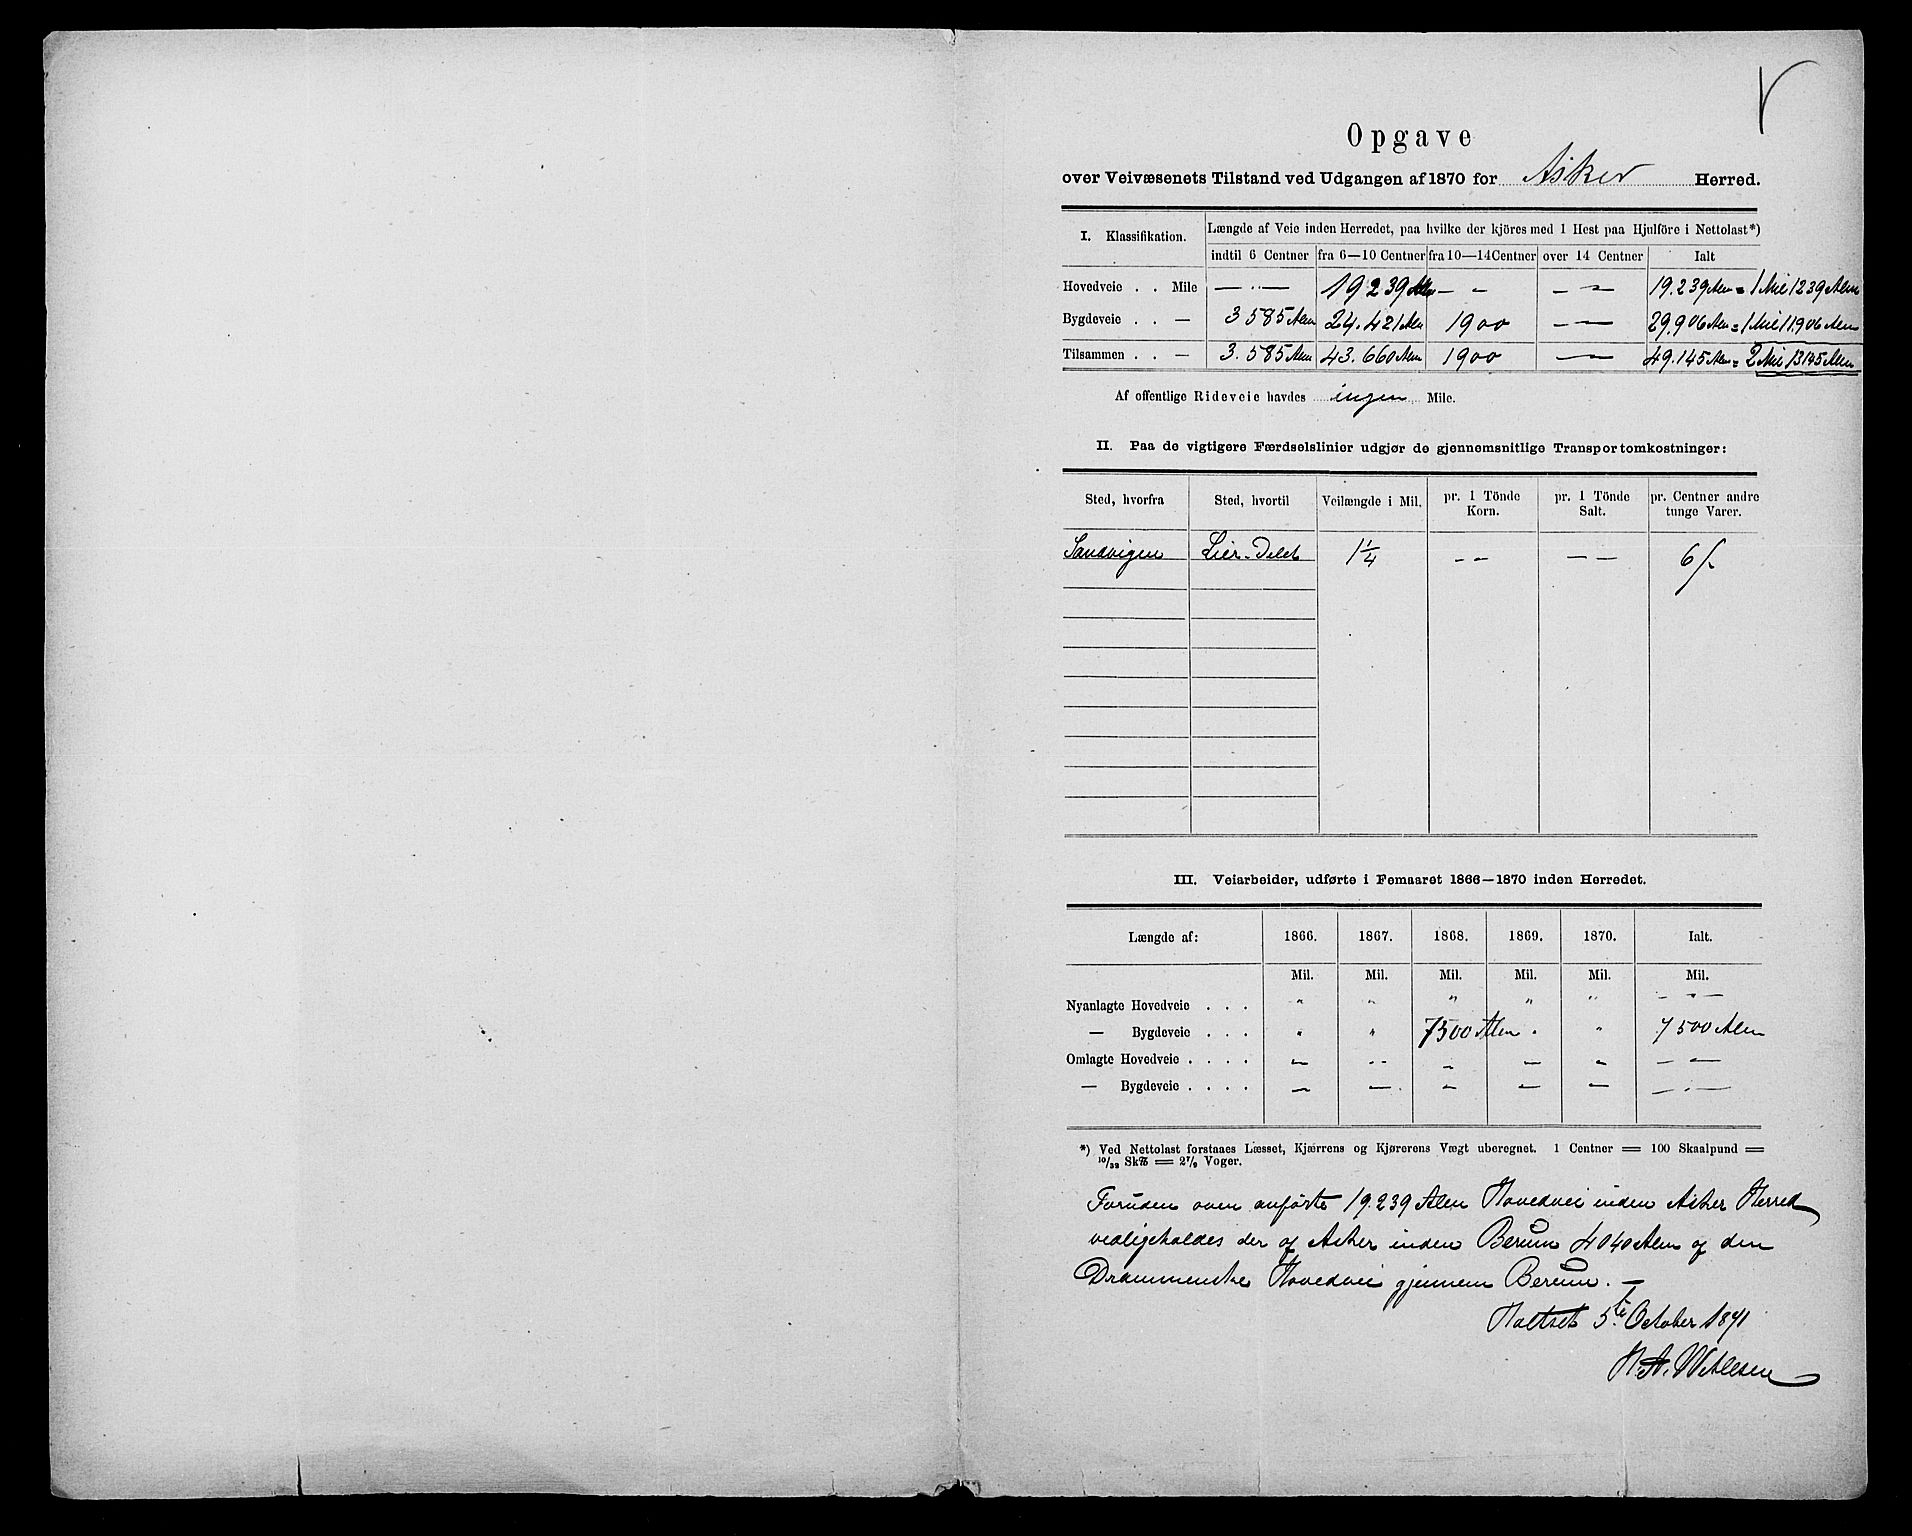 Opgave
over Veivæsenets Tilstand ved Udgangen af 1870 for Asker Herred.
I. Klassifikation. Længde af Veie inden Herredet, paa hvilke der kjöres med 1 Hest paa Hjulföre i Nettolast*)
indtil 6 Centner fra 6—10 Centner fra 10—14 Centner over 14 Centner Ialt
Hovedveie . . Mile — " — 19239 Alen — " — " — 19.239 Alen = 1 Mil 1239 Alen
Bygdeveie . . — 3585 Alen 24.421 Aln 1900 — — 29.906 Alen = 1 Mil 11,906 Alen
Tilsammen . . — 3.585 Alen 43.660 Alen 1900 — 49.145 Alen = 2 Mil 13145 Alen
Af offentlige Rideveie havdes ingen Mile.
II. Paa de vigtigere Færdselslinier udgjør de gjennemsnitlige Transportomkostninger:
Sted, hvorfra Sted, hvortil Veilængde i Mil. pr. 1 Tönde Korn. pr. 1 Tönde Salt. pr. Centner andre tunge Varer.
Sandvigen Lier-Delet 1 1/4 — — — — 6 ſ-
III. Veiarbeider, udførte i Femaaret 1866—1870 inden Herredet.
Længde af: 1866. 1867. 1868. 1869. 1870. Ialt.
Mil. Mil. Mil. Mil. Mil. Mil.
Nyanlagte Hovedveie . . . " " " " " — " —
— Bygdeveie . . . " " 7500 Alen " " 7500 Alen
Omlagte Hovedveie . . . . — - - — — — — —
— Bygdeveie . . . . — — — — — — . —
*) Ved Nettolast forstaaes Læsset, Kjærrens og Kjørerens Vægt uberegnet. 1 Centner = 100 Skaalpund =
10/32 Sk℔ = 2 7/9 Voger.
Foruden oven anførte 19.239 Alen Hovedvei inden Asker Herred
vedligeholdes der af Asker inden Berum 4040 Alen af den
Drammenske Hovedvei gjennem Berum. —
5te October 1871